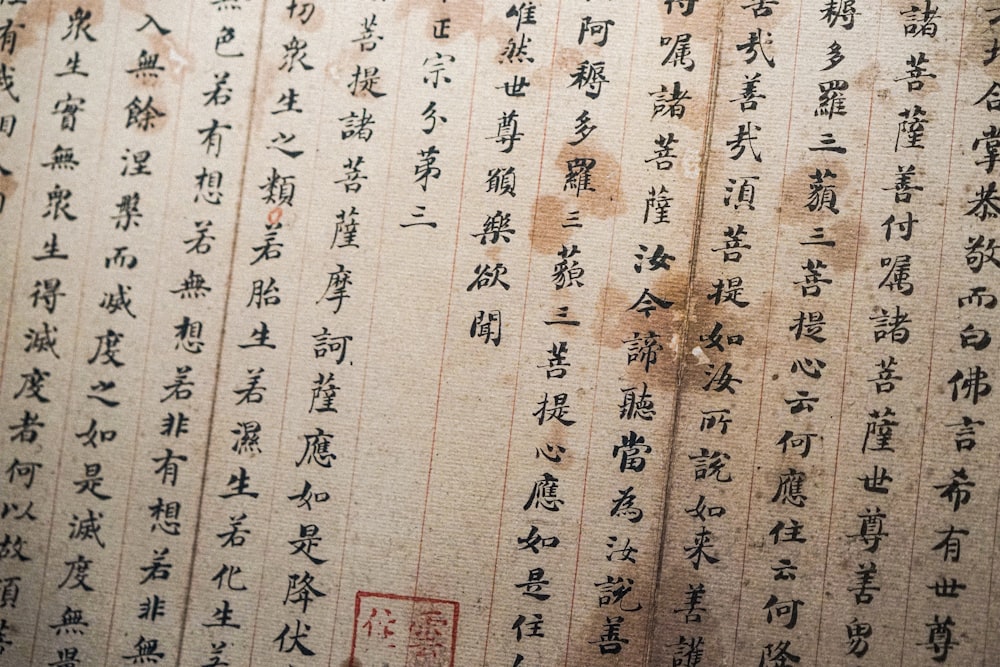 地合掌恭敬而白佛言希有世尊
諸菩薩善付囑諸菩薩世尊善男
耨多羅三藐三菩提心云何應住云何降
哉善哉須菩提如汝所說如來善護
囑諸菩薩汝今諦聽當為汝說善
阿耨多羅三藐三菩提心應如是住
唯然世尊願樂欲聞
正宗分第三
菩提諸菩薩摩訶薩應如是降伏
切衆生之類若胎生若濕生若化生若
色若有想若無想若非有想若非無
入無餘涅槃而滅度之如是滅度無量
衆生實無衆生得滅度者何以故須菩
有我相人